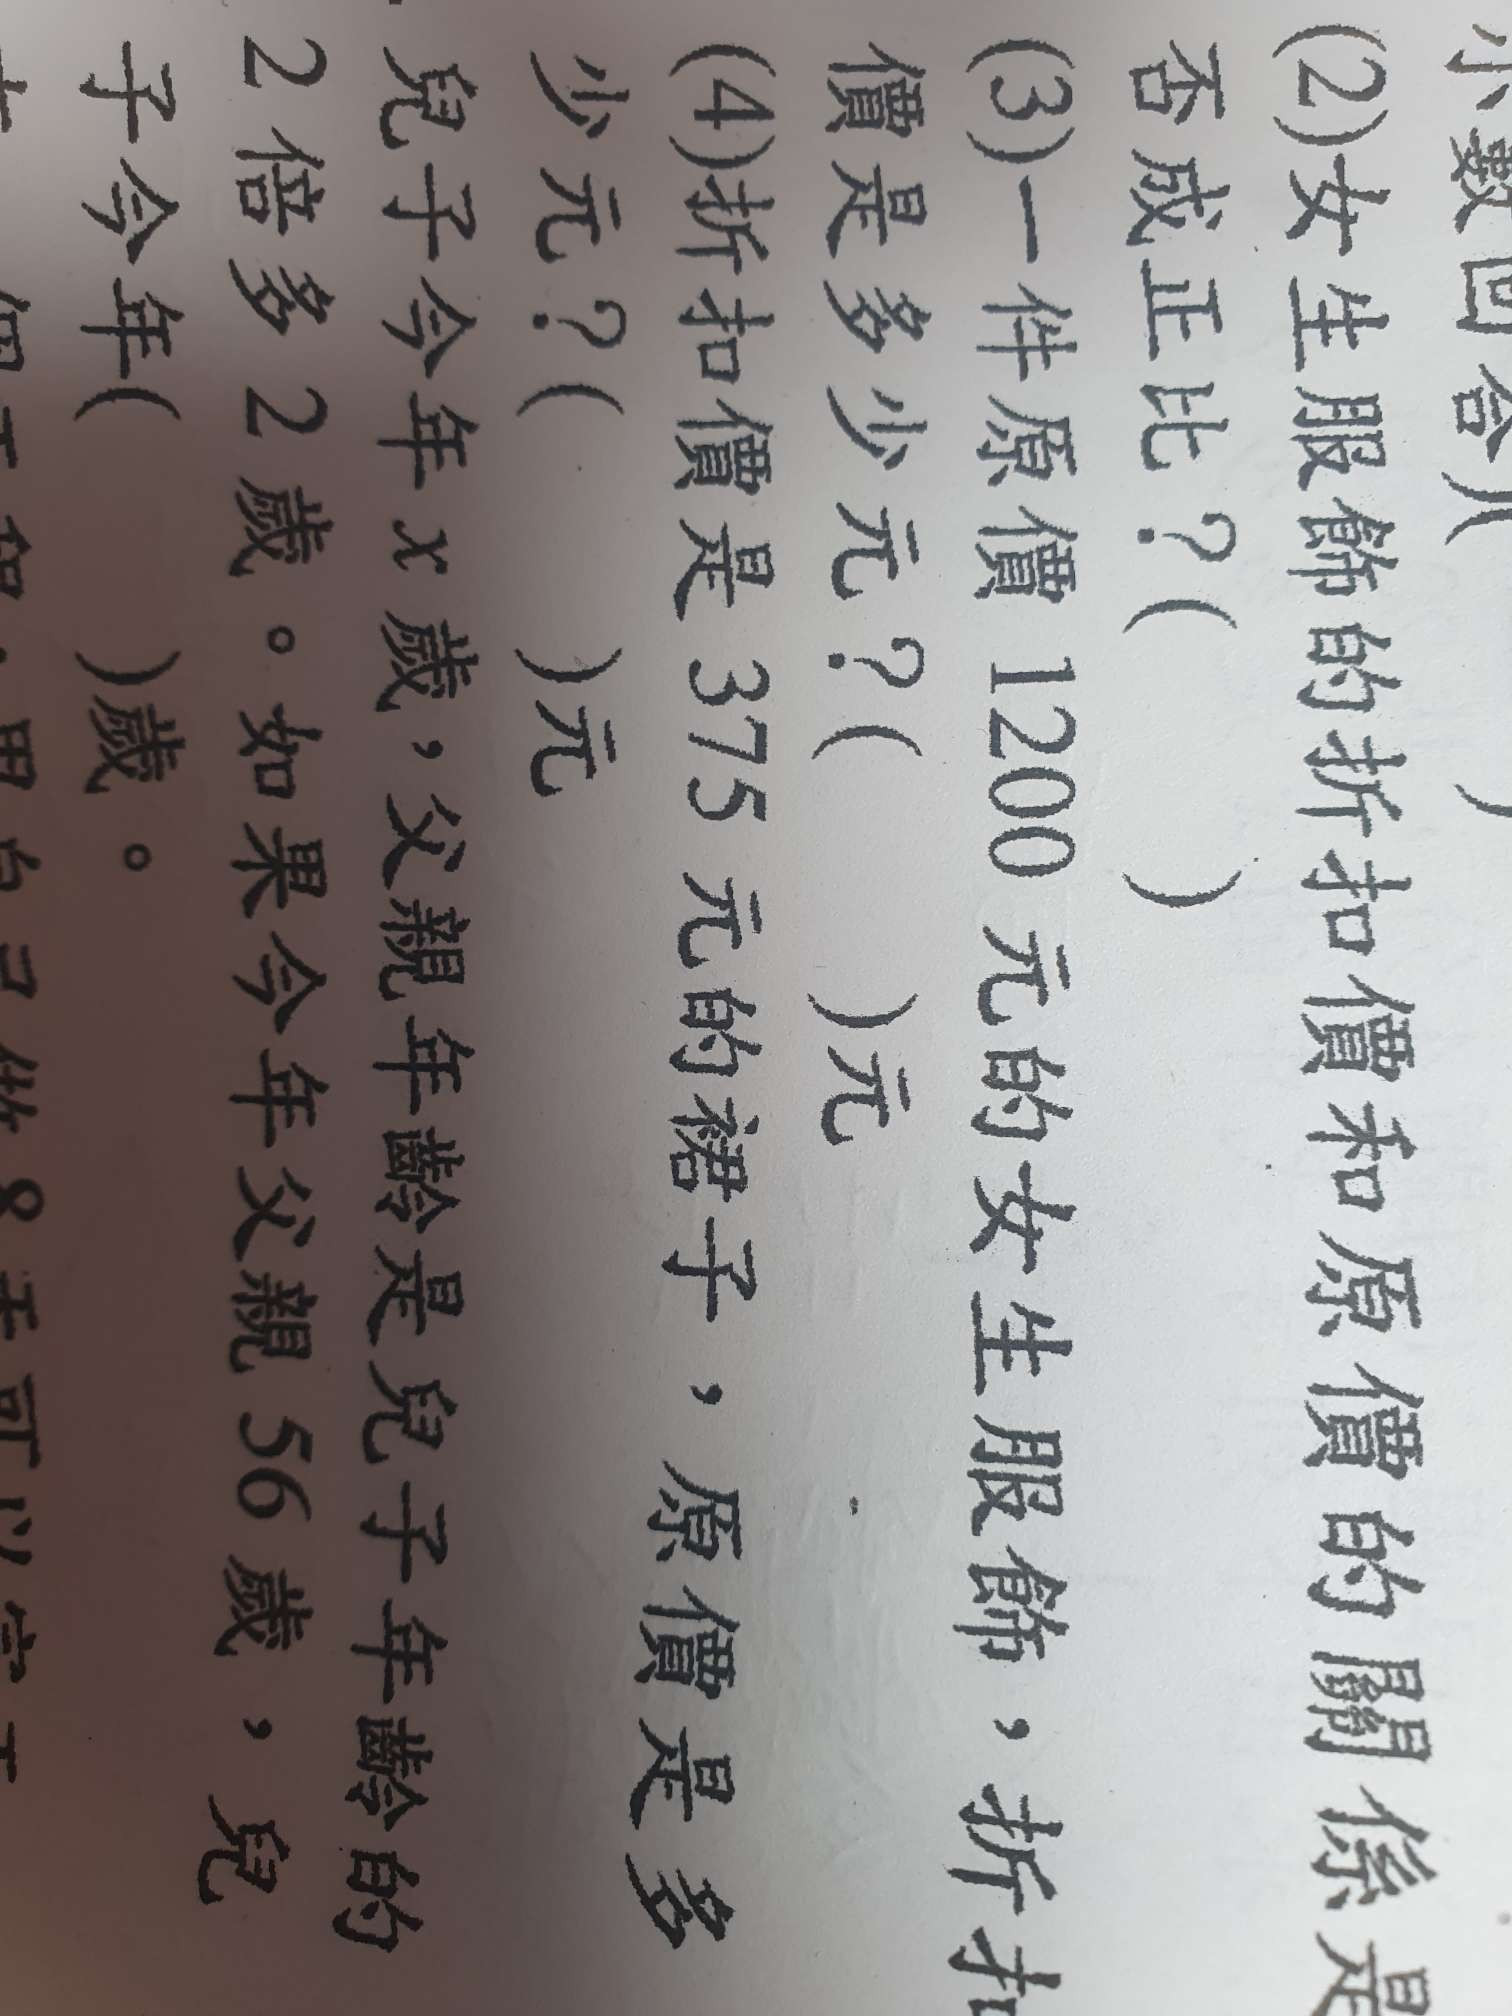 小數回答)(　　　)
(2)女生服飾的折扣價和原價的關係是
否成正比？(　　　)
(3)一件原價 1200 元的女生服飾，折扣
價是多少元？(　　　)元
(4)折扣價是 375 元的裙子，原價是多
少元？(　　　)元
兒子今年 x 歲，父親年齡是兒子年齡的
2 倍多 2 歲。如果今年父親 56 歲，兒
子今年(　　　)歲。